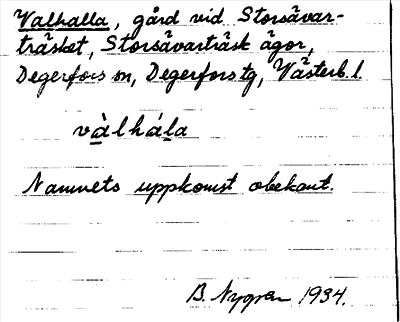 Valhalla, gård vid Storsävar-
träsket, Storsävarträsk ägor,
Degerfors sn, Degerfors tg, Västerb. l.
vàlhála
Namnets uppkomst obekant.
B. Nygren 1934.